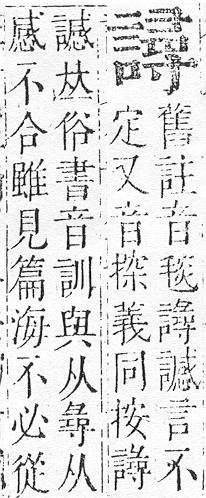 舊註音毯言不
定又音探義同按
𠀤俗書音訓與从尋从
感不合雖見篇海不必從